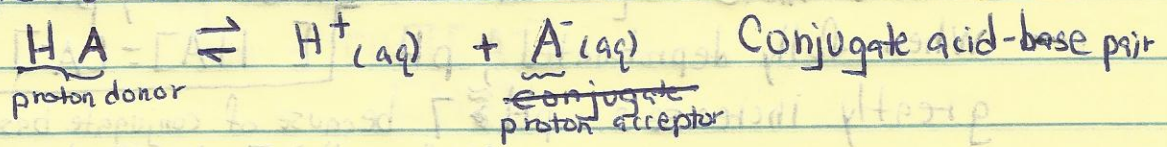 HA ⇌ H⁺(aq) + A⁻(aq) Conjugate acid-base pair
proton donor conjugate
proton acceptor